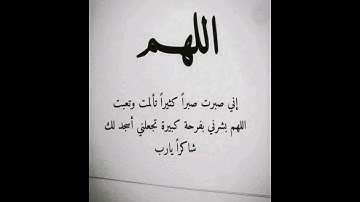 اللهم
إني صبرت صبراً كثيراً تألمت وتعبت
اللهم بشرني بفرحة كبيرة تجعلني أسجد لك
شاكراً يارب